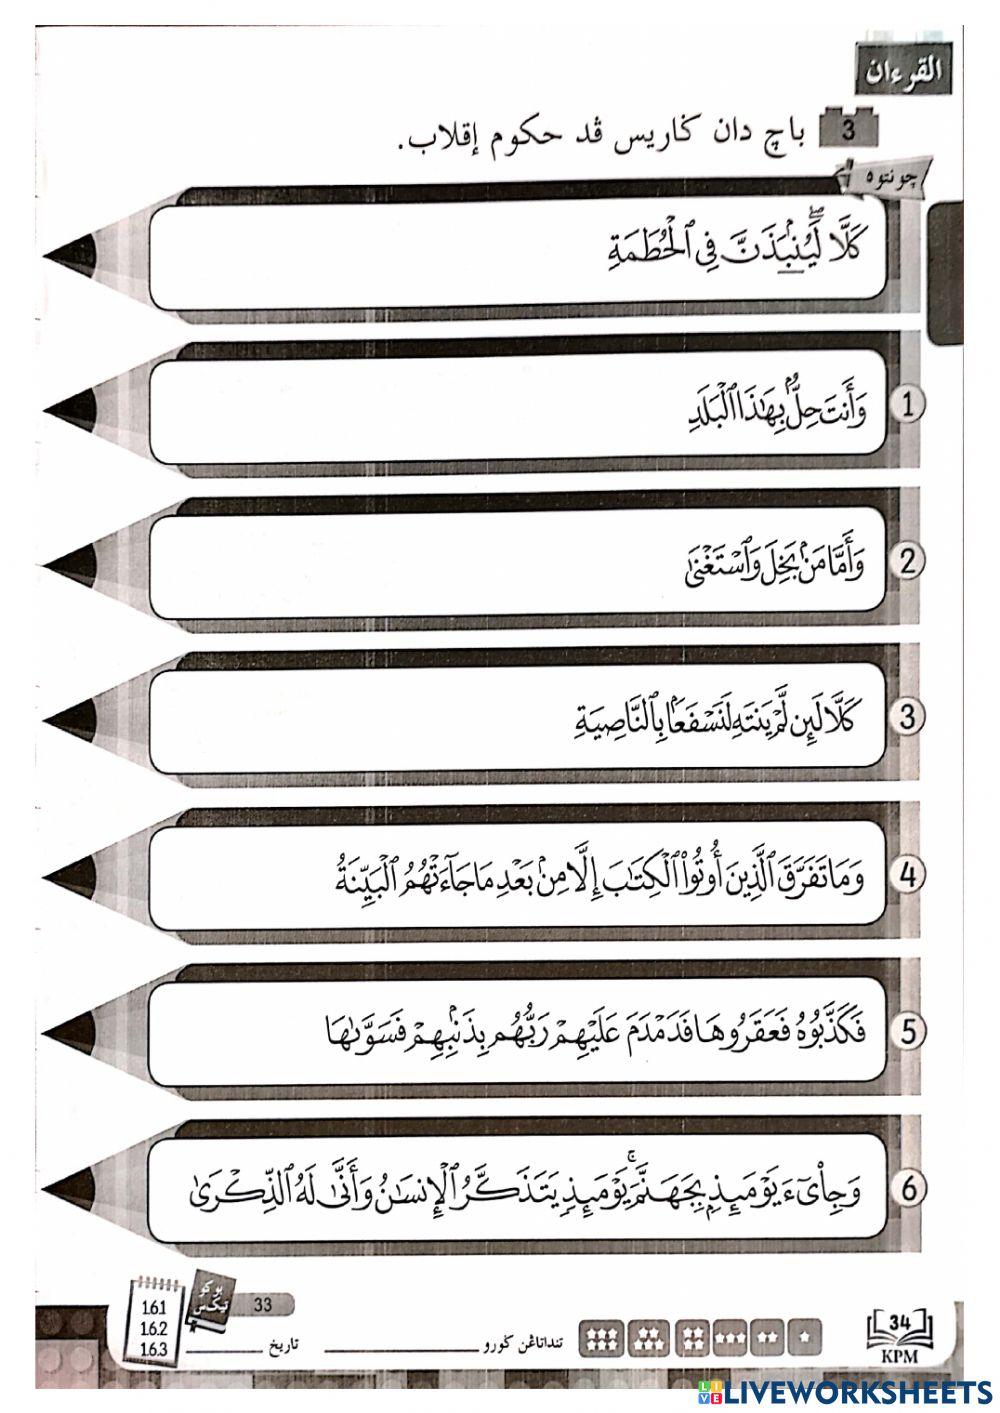 القرءان
3 باچ دان ݢاريس ڤد حكوم إقلاب.
چونتوه
كَلَّا ۖ لَيُنۢبَذَنَّ فِي ٱلْحُطَمَةِ
1 وَأَنتَ حِلٌّۢ بِهَـٰذَا ٱلْبَلَدِ
2 وَأَمَّا مَنۢ بَخِلَ وَٱسْتَغْنَىٰ
3 كَلَّا لَئِن لَّمْ يَنتَهِ لَنَسْفَعًۢا بِٱلنَّاصِيَةِ
4 وَمَا تَفَرَّقَ ٱلَّذِينَ أُوتُوا۟ ٱلْكِتَـٰبَ إِلَّا مِنۢ بَعْدِ مَا جَآءَتْهُمُ ٱلْبَيِّنَةُ
5 فَكَذَّبُوهُ فَعَقَرُوهَا فَدَمْدَمَ عَلَيْهِمْ رَبُّهُم بِذَنۢبِهِمْ فَسَوَّىٰهَا
6 وَجِا۟ىٓءَ يَوْمَئِذٍۭ بِجَهَنَّمَ ۚ يَوْمَئِذٍ يَتَذَكَّرُ ٱلْإِنسَـٰنُ وَأَنَّىٰ لَهُ ٱلذِّكْرَىٰ
1.6.1
1.6.2
1.6.3
بوكو تيکس
33
تنداتاڠن ݢورو
تاريخ
34
KPM
LIVEWORKSHEETS